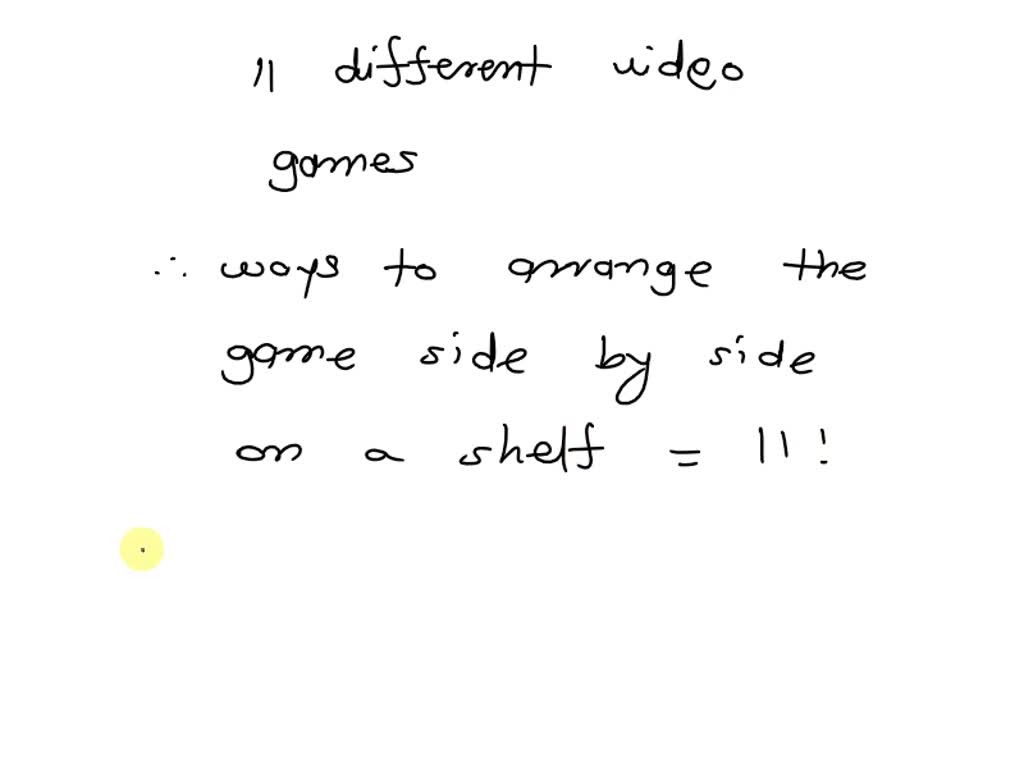 11 different video
games
∴ ways to arrange the
game side by side
on a shelf = 11!